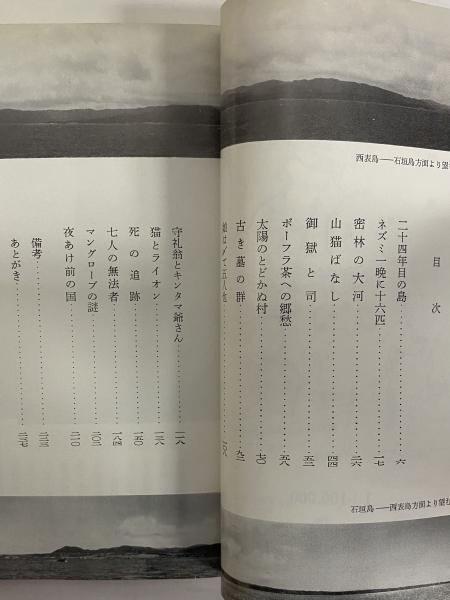 西表島――石垣島方面より望
目次
二十四年目の島……六
ネズミ一晩に十六匹……一七
密林の大河……二六
山猫ばなし……四四
御獄と司……五三
ボーフラ茶への郷愁……五八
太陽のとどかぬ村……七〇
古き墓の群……九二
石垣島――西表島方面より望
守礼翁とキンタマ爺さん……一一八
猫とライオン……一三八
死の追跡……一五〇
七人の無法者……一八四
マングローブの謎……二〇二
夜あけ前の国……二一〇
備考……二三三
あとがき……二三七